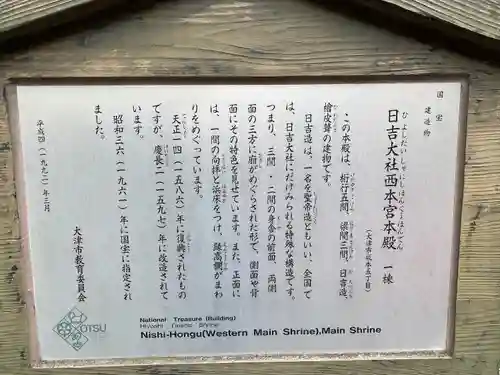 国宝
建造物
日吉大社西本宮本殿 一棟
ひよしたいしゃにしほんぐうほんでん
(大津市坂本五丁目)
この本殿は、桁行五間、梁間三間、日吉造、
檜皮葺の建物です。
日吉造は、一名を聖帝造ともいい、全国で
は、日吉大社にだけみられる特殊な構造です。
つまり、三間・二間の身舎の前面、両側
面の三方に廂がめぐらされた形で、側面や背
面にその特色を見せています。また、正面に
は、一間の向拝と浜床をつけ、縁高欄がまわ
りをめぐっています。
天正一四(一五八六)年に復興されたもの
ですが、慶長二(一五九七)年に改造されて
います。
昭和三六(一九六一)年に国宝に指定され
ました。
平成四(一九九二)年三月
大津市教育委員会
OTSU
National Treasure (Building)
Hiyoshi Taisha Shrine
Nishi-Hongu(Western Main Shrine),Main Shrine